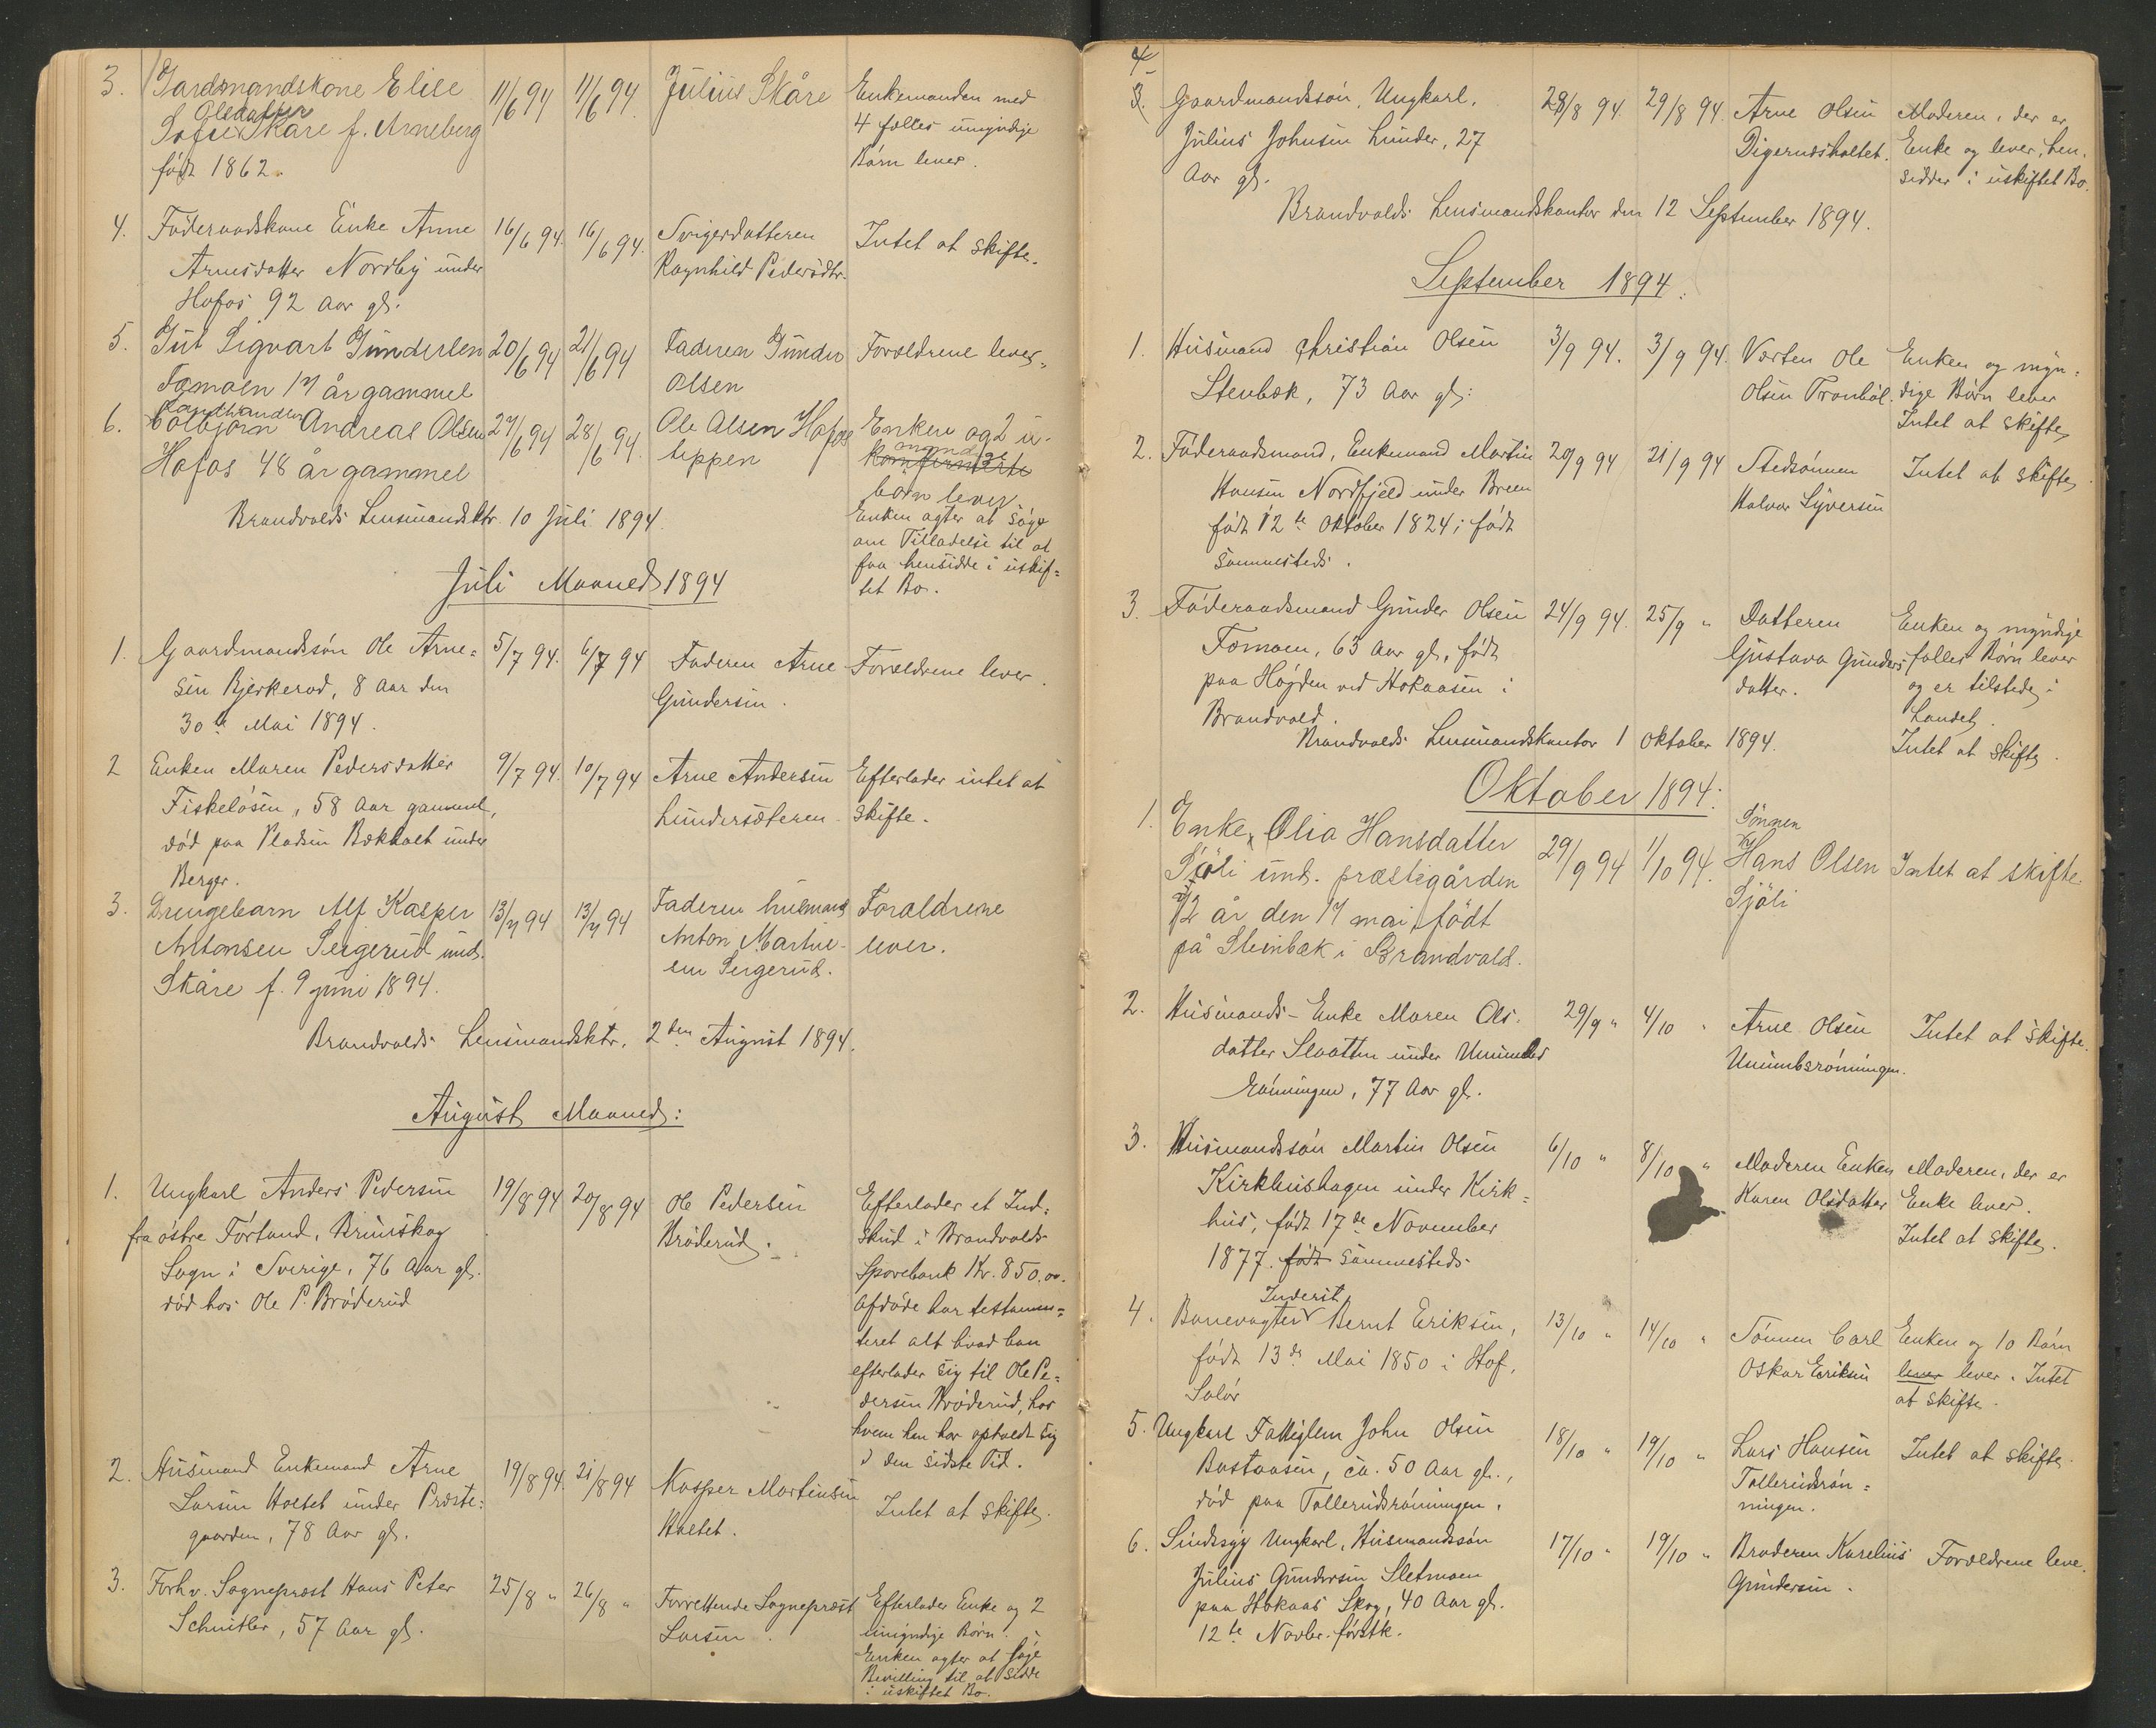 3. Gardsmandskone Elise 11/6 94 11/6 94 Julius Skåre Enkemanden med
Olsdatter 4 fælles umyndige
Sofie Skåre f. Arneberg Børn lever.
født 1862.
4. Føderaadskone Enke Anne 16/6 94. 16/6 94. Svigerdatteren Intet at skifte.
Arnesdatter Nordby under Ragnhild Pedersdtr.
Hofos 92 Aar gl.
5. Gut Sigvart Gundersen 20/6 94 21/6 94 Faderen Gunder Forældrene lever.
Tomoen 17 år gammel Olsen
Landhandler
6. Colbjørn Andreas Olsen 27/6 94 28/6 94. Ole Olsen Hofos Enken og 2 u-
Hofos 48 år gammel teppen konfirmerte
mynd
børn lever.
Brandvolds Lensmandsktr. 10 Juli 1894. Enken agter at søge
om Tilladelse til at
faa hensidde i uskif=
tet Bo.
Juli Maaned 1894
1. Gaardmandssøn Ole Arne= 5/7 94. 6/7 94 Faderen Arne Forældrene lever.
sen Bjerkerud, 8 Aar den Gundersen.
30te Mai 1894.
2 Enken Maren Pedersdatter 9/7 94. 10/7 94 Arne Andersen Efterlader intet at
Fiskeløsen, 58 Aar gammel, Lundersæteren skifte.
død paa Pladsen Bækholt under
Berger.
3. Drengebarn Alf Kasper 13/7 94 13/7 94 Faderen husmand Foraldrene
Antonsen Sergerud und. Anton Martin- lever.
Skåre f. 9 juni 1894. sen Sergerud.
Brandvolds Lensmandsktr. 2den August 1894.
August Maaned:
1. Ungkarl Anders Pedersen 19/8 94 20/8 94 Ole Pedersen Efterlader et Ind=
fra østre Førtand, Brunskog Brøderud. skud i Brandvolds
Sogn i Sverige, 76 Aar gl. Sparebank Kr. 850,00.
død hos Ole P. Brøderud Afdøde har testamen=
teret alt hvad han
efterlader sig til Ole Pe=
dersen Brøderud, hos
hvem han har opholdt sig
i den sidste Tid.
2. Husmand Enkemand Arne 19/8 94. 21/8 94 Kasper Martinsen Intet at skifte.
Larsen Holtet under Præste= Holtet.
gaarden, 78 Aar gl.
3. Forhv. Sogneprest Hans Peter 25/8 " 26/8 " Forrettende Sogneprest Efterlader Enke og 2
Schnitler, 57 Aar gl. Larsen. umyndige Børn.
Enken agter at søge
Bevilling til at sidde
i uskiftet Bo.
4
3. Gaardmandssøn, Ungkarl, 29/8 94. 29/8 94. Arne Olsen Moderen, der er
Julius Johnsen Lunder, 27 Digerudsholtet. Enke og lever, hen-
Aar gl. sidder i uskiftet Bo.
Brandvolds Lensmandskontor den 12 September 1894.
September 1894.
1. Husmand Christian Olsen 3/9 94. 3/9 94. Værten Ole Enken og myn=
Stenbæk, 73 Aar gl. Olsen Tronbøl. dige Børn lever
Intet at skifte
2. Føderaadsmand, Enkemand Martin 20/9 94 21/9 94 Stedsønnen Intet at skifte.
Hansen Nordfjeld under Breen Halvor Syversen
født 12te Oktober 1824; født
sammesteds.
3 Føderaadsmand Gunder Olsen 24/9 94. 25/9 " Datteren Enken og myndige
Tomoen, 63 Aar gl, født Gustava Gunders fælles Børn lever
paa Høgden ved Hokaasen i datter. og er tilstede i
Brandvold. Landet.
Brandvolds Lensmandskontor 1 Oktober 1894. Intet at skifte.
Oktober 1894.
1. Enke, Olia Hansdatter 29/9 94 1/10 94. Sønnen
Sjöli und. præstegården Hans Olsen Intet at skifte.
72 år den 17 mai, født Sjöli
på Stenbæk i Brandvold.
2. Husmands-Enke Maren Ols- 29/9 " 4/10 " Arne Olsen Intet at skifte.
datter Slaatten under Ununbs Ununbsrønningen.
rønningen, 77 Aar gl.
3. Husmandssøn Martin Olsen 6/10 " 8/10 " Moderen Enken Moderen, der er
Kirkhushagen under Kirk= Karen Olsdatter Enke lever.
hus, født 17de November Intet at skifte.
1877. født sammesteds
Inderst
4. Banevogter Bernt Eriksen, 13/10 " 14/10 " Sønnen Carl Enken og 10 Børn
født 13de Mai 1850 i Hof, Oskar Eriksen lever lever. Intet
Solør at skifte.
5. Ungkarl Fattiglem John Olsen 18/10 " 19/10 " Lars Hansen Intet at skifte.
Bastaasen, ca. 50 Aar gl., Tollerudsrøn=
død paa Tollerudsrønningen. ningen.
6. Sindssyg Ungkarl, Husmandssøn 17/10 " 19/10 " Broderen Karelius Forældrene leve.
Julius Gundersen Sletmoen Gundersen.
paa Hokaas Skog, 40 Aar gl.
12te Novbr. førstk.